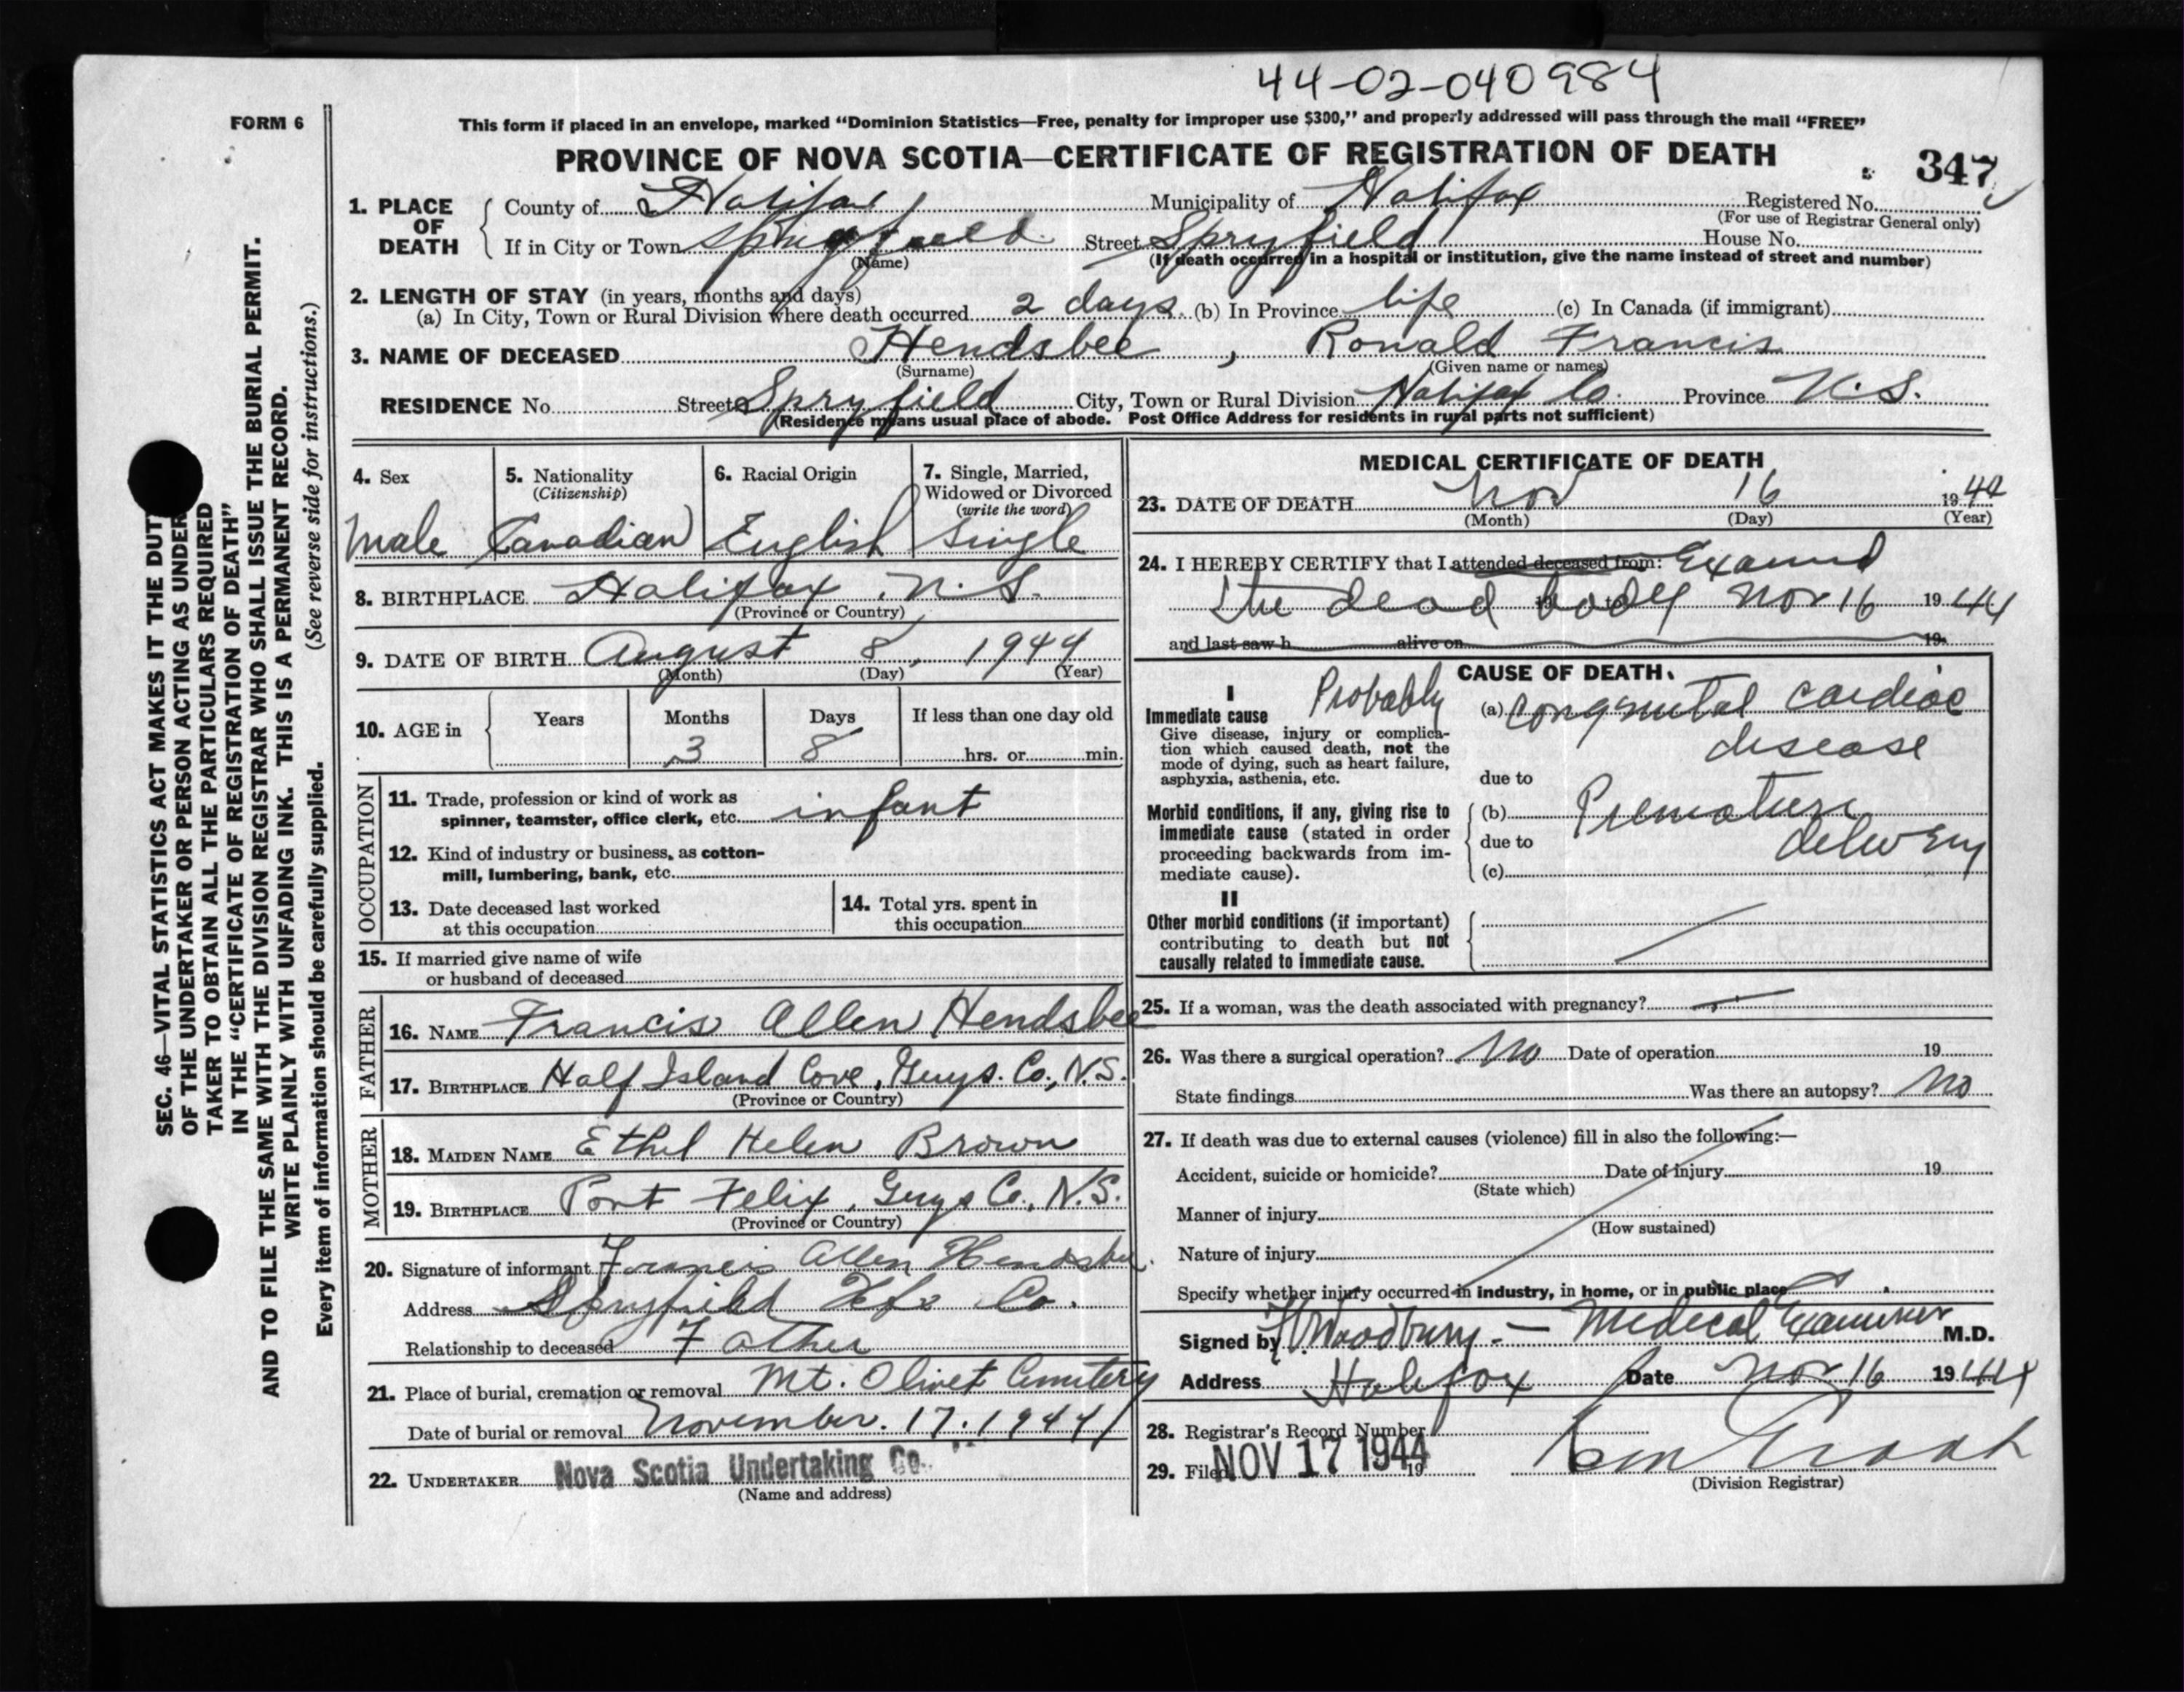 44-02-040984
FORM 6
This form if placed in an envelope, marked "Dominion Statistics—Free, penalty for improper use $300," and properly addressed will pass through the mail "FREE"
PROVINCE OF NOVA SCOTIA—CERTIFICATE OF REGISTRATION OF DEATH
347
1. PLACE OF DEATH
County of Halifax Municipality of Halifax Registered No.
(For use of Registrar General only)
If in City or Town Street Spryfield House No.
(Name) (If death occurred in a hospital or institution, give the name instead of street and number)
2. LENGTH OF STAY (in years, months and days)
(a) In City, Town or Rural Division where death occurred 2 days (b) In Province life (c) In Canada (if immigrant)
3. NAME OF DECEASED Hendsbee, Ronald Francis
(Surname) (Given name or names)
RESIDENCE No. Street Spryfield City, Town or Rural Division Halifax Co. Province N.S.
(Residence means usual place of abode. Post Office Address for residents in rural parts not sufficient)
4. Sex
Male
5. Nationality
(Citizenship)
Canadian
6. Racial Origin
English
7. Single, Married,
Widowed or Divorced
(write the word)
Single
8. BIRTHPLACE Halifax, N.S.
(Province or Country)
9. DATE OF BIRTH August 8, 1944
(Month) (Day) (Year)
10. AGE in Years Months Days If less than one day old
3 8 hrs. or min.
OCCUPATION
11. Trade, profession or kind of work as
spinner, teamster, office clerk, etc. infant
12. Kind of industry or business, as cotton-
mill, lumbering, bank, etc.
13. Date deceased last worked
at this occupation
14. Total yrs. spent in
this occupation
15. If married give name of wife
or husband of deceased
FATHER
16. NAME Francis Allen Hendsbee
17. BIRTHPLACE Half Island Cove, Guys. Co., N.S.
(Province or Country)
MOTHER
18. MAIDEN NAME Ethel Helen Brown
19. BIRTHPLACE Port Felix, Guys Co., N.S.
(Province or Country)
20. Signature of informant Francis Allen Hendsbee.
Address Spryfield Hfx Co.
Relationship to deceased Father
21. Place of burial, cremation or removal Mt. Olivet Cemetery
Date of burial or removal November. 17. 1944
22. UNDERTAKER Nova Scotia Undertaking Co.
(Name and address)
MEDICAL CERTIFICATE OF DEATH
23. DATE OF DEATH Nov 16 1944
(Month) (Day) (Year)
24. I HEREBY CERTIFY that I attended deceased from: Examined
the dead body Nov 16 1944
and last saw h alive on 19
CAUSE OF DEATH.
I
Immediate cause Probably (a) Congenital cardiac
disease
Give disease, injury or complica-
tion which caused death, not the
mode of dying, such as heart failure,
asphyxia, asthenia, etc.
due to
Morbid conditions, if any, giving rise to
immediate cause (stated in order
proceeding backwards from im-
mediate cause).
(b) Premature
due to delivery
(c)
II
Other morbid conditions (if important)
contributing to death but not
causally related to immediate cause.
25. If a woman, was the death associated with pregnancy? —
26. Was there a surgical operation? No Date of operation 19
State findings Was there an autopsy? No
27. If death was due to external causes (violence) fill in also the following:—
Accident, suicide or homicide? Date of injury 19
(State which)
Manner of injury
(How sustained)
Nature of injury
Specify whether injury occurred in industry, in home, or in public place
Signed by Woodbury — Medical Examiner M.D.
Address Halifax Date Nov 16 1944
28. Registrar's Record Number
29. Filed NOV 17 1944 19
(Division Registrar)
SEC. 46—VITAL STATISTICS ACT MAKES IT THE DUTY
OF THE UNDERTAKER OR PERSON ACTING AS UNDER
TAKER TO OBTAIN ALL THE PARTICULARS REQUIRED
IN THE "CERTIFICATE OF REGISTRATION OF DEATH"
AND TO FILE THE SAME WITH THE DIVISION REGISTRAR WHO SHALL ISSUE THE BURIAL PERMIT.
WRITE PLAINLY WITH UNFADING INK. THIS IS A PERMANENT RECORD.
Every item of information should be carefully supplied. (See reverse side for instructions.)